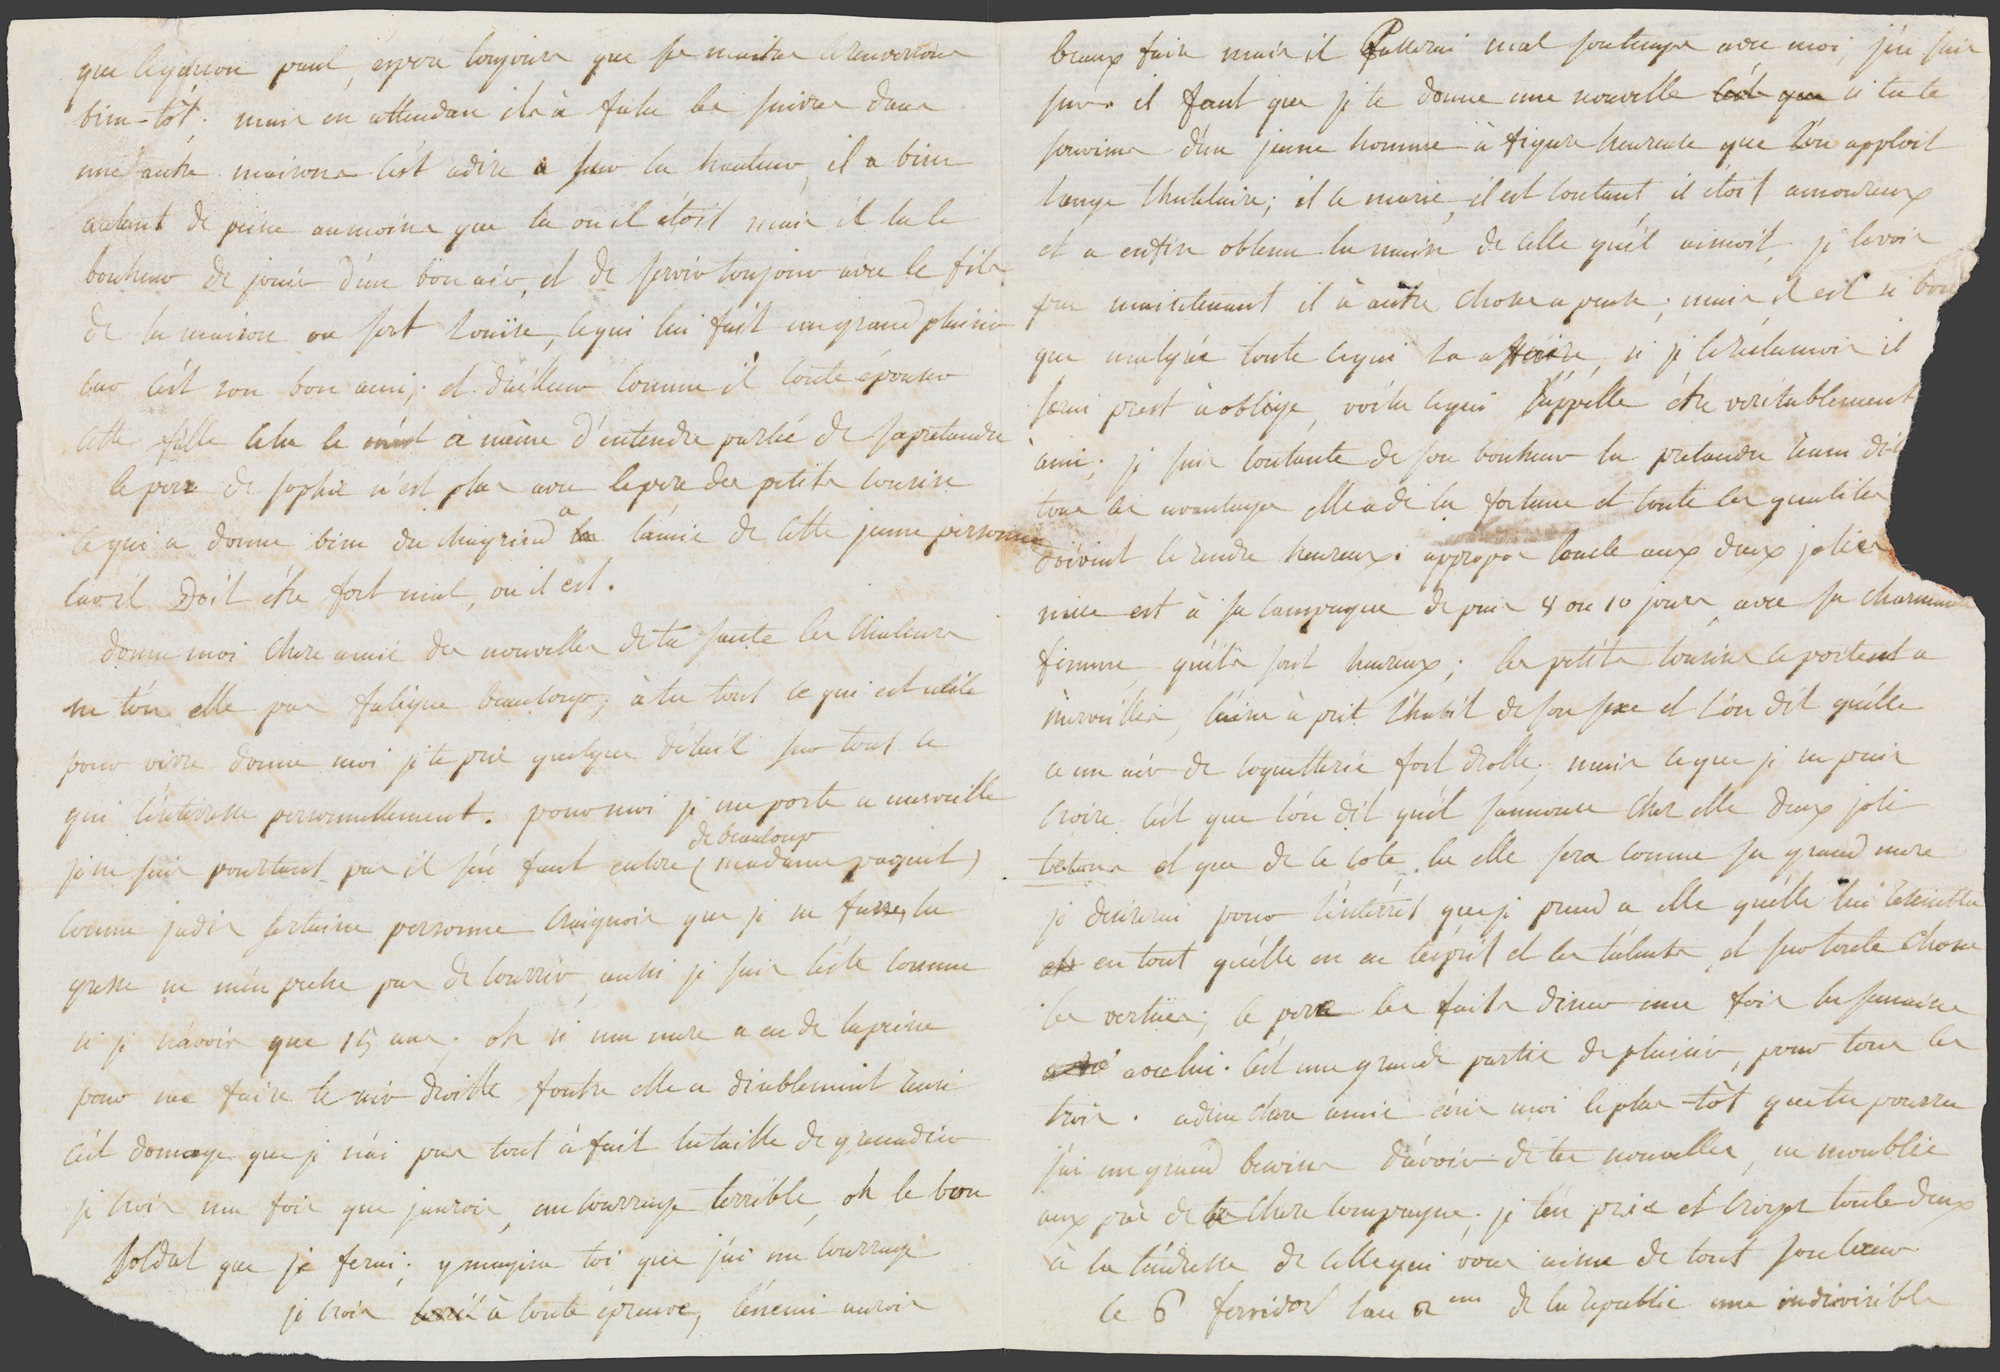 que legarson paul, espere toujours que se maitre lerenvoira
bien-tôt; mais en attendan ila à falu les suivre dans
une autre maisons c'ést adire a sur la hauteur, il a bien
autant de peine aumoins que la ou il étoit mais il la le
bonheur de jouir d'un bon air, et de servir toujour avec le fils
de la maison ou sort Louise, cequi lui fait un grand plaisir
car c'ést son bon ami; et d'ailleur comme il conte épouser
cette fille cela le met à même d'entendre parlé de sapretandu
le pere de sophie n'est plus avec lepere des petits cousins
ce qui a donne bien du chagrind a l'amie de cette jeune personne
car il Doit être fort mal, ou il est.
donne moi chere amie des nouvelles deta sante les chaleurs
ne t'on elle pas fatigue beaucoup; à tu tout ce qui est utile
pour vivre donne moi je te prie quelque détail sur tout ce
qui t'intéresse personnellement. pour moi je me porte a merveille
je ne suis pourtant pas il s'én faut de beaucoup (madame paquit)
comme jadis sertaine personne craignoir que je ne fusse, la
gresse ne m'én peche pas de courrir, aussi je suis leste comme
si je n'avois que 15 ans; oh si ma mere a eu de lapeine
pour me faire te air droitte foutre elle a diablement réusi
c'ést domage que je n'ai pas tout à fait lataille de grenadier
je crois ma fois que jaurois, un courrage terrible, oh le bon
soldat que je ferai; ymagine toi que j'ai un courrage
je crois à toute épreuve, l'énemi auroir
beaux faire mais il passerai mal sontemps avec moi; j'én suis
sur. il faut que je te donne une nouvelle si tu te
souviens d'un jeune homme à figure heureuse que l'on apploit
l'ange thutelaire; il ce marie, il est contant il etoit amoureux
et a enfin obtenu la main de celle qu'il aimoit, je levois
pas maintenant il à autre chose a pensé; mais il est si bon
que malgrée toute cequi la affaire, si je lereclamois il
serai prest à obligé, voila cequi s'áppelle être véritablement
ami; je suis contante de son bonheur la pretandu réuni
tous les avantages elle a de la fortune et toute les qualités
doivent le rendre heureux; appropos l'oncle aux deux jolies
niece est à sa campagne de puis 8 ou 10 jours, avec sa charmante
femme, qu'ils sont heureux; les petits cousins ce portent a
merveilles, l'ainé à prit l'habit de son sexe et l'on dit qu'elle
a un air de coquetterie fort drolle; mais ce que je ne puis
croire c'ést que l'ón dit qu'il s'annonce chez elle deux joli
tetons et que de ce côté là elle sera comme sa grand mere
je desirerai pour l'intérrêt que je prend a elle qu'elle lui resembla
en tout qu'elle en eu l'ésprit et les talents, et sur toute chose
les vertues; le pere les faits diner une fois la semaine
avec lui. c'ést une grande partie de plaisir, pour tous les
trois. adieu chere amie écris moi leplus-tôt que tu pourra
j'ai un grand besoins d'avoir de tes nouvelles, ne moublie
aux près de ta chere compagne; je t'en prie et croyez toute deux
à la téndresse de cellequi vous aime de tout son coeur
ce 6 fervidor l'an 2 eme de la republic une indivisible